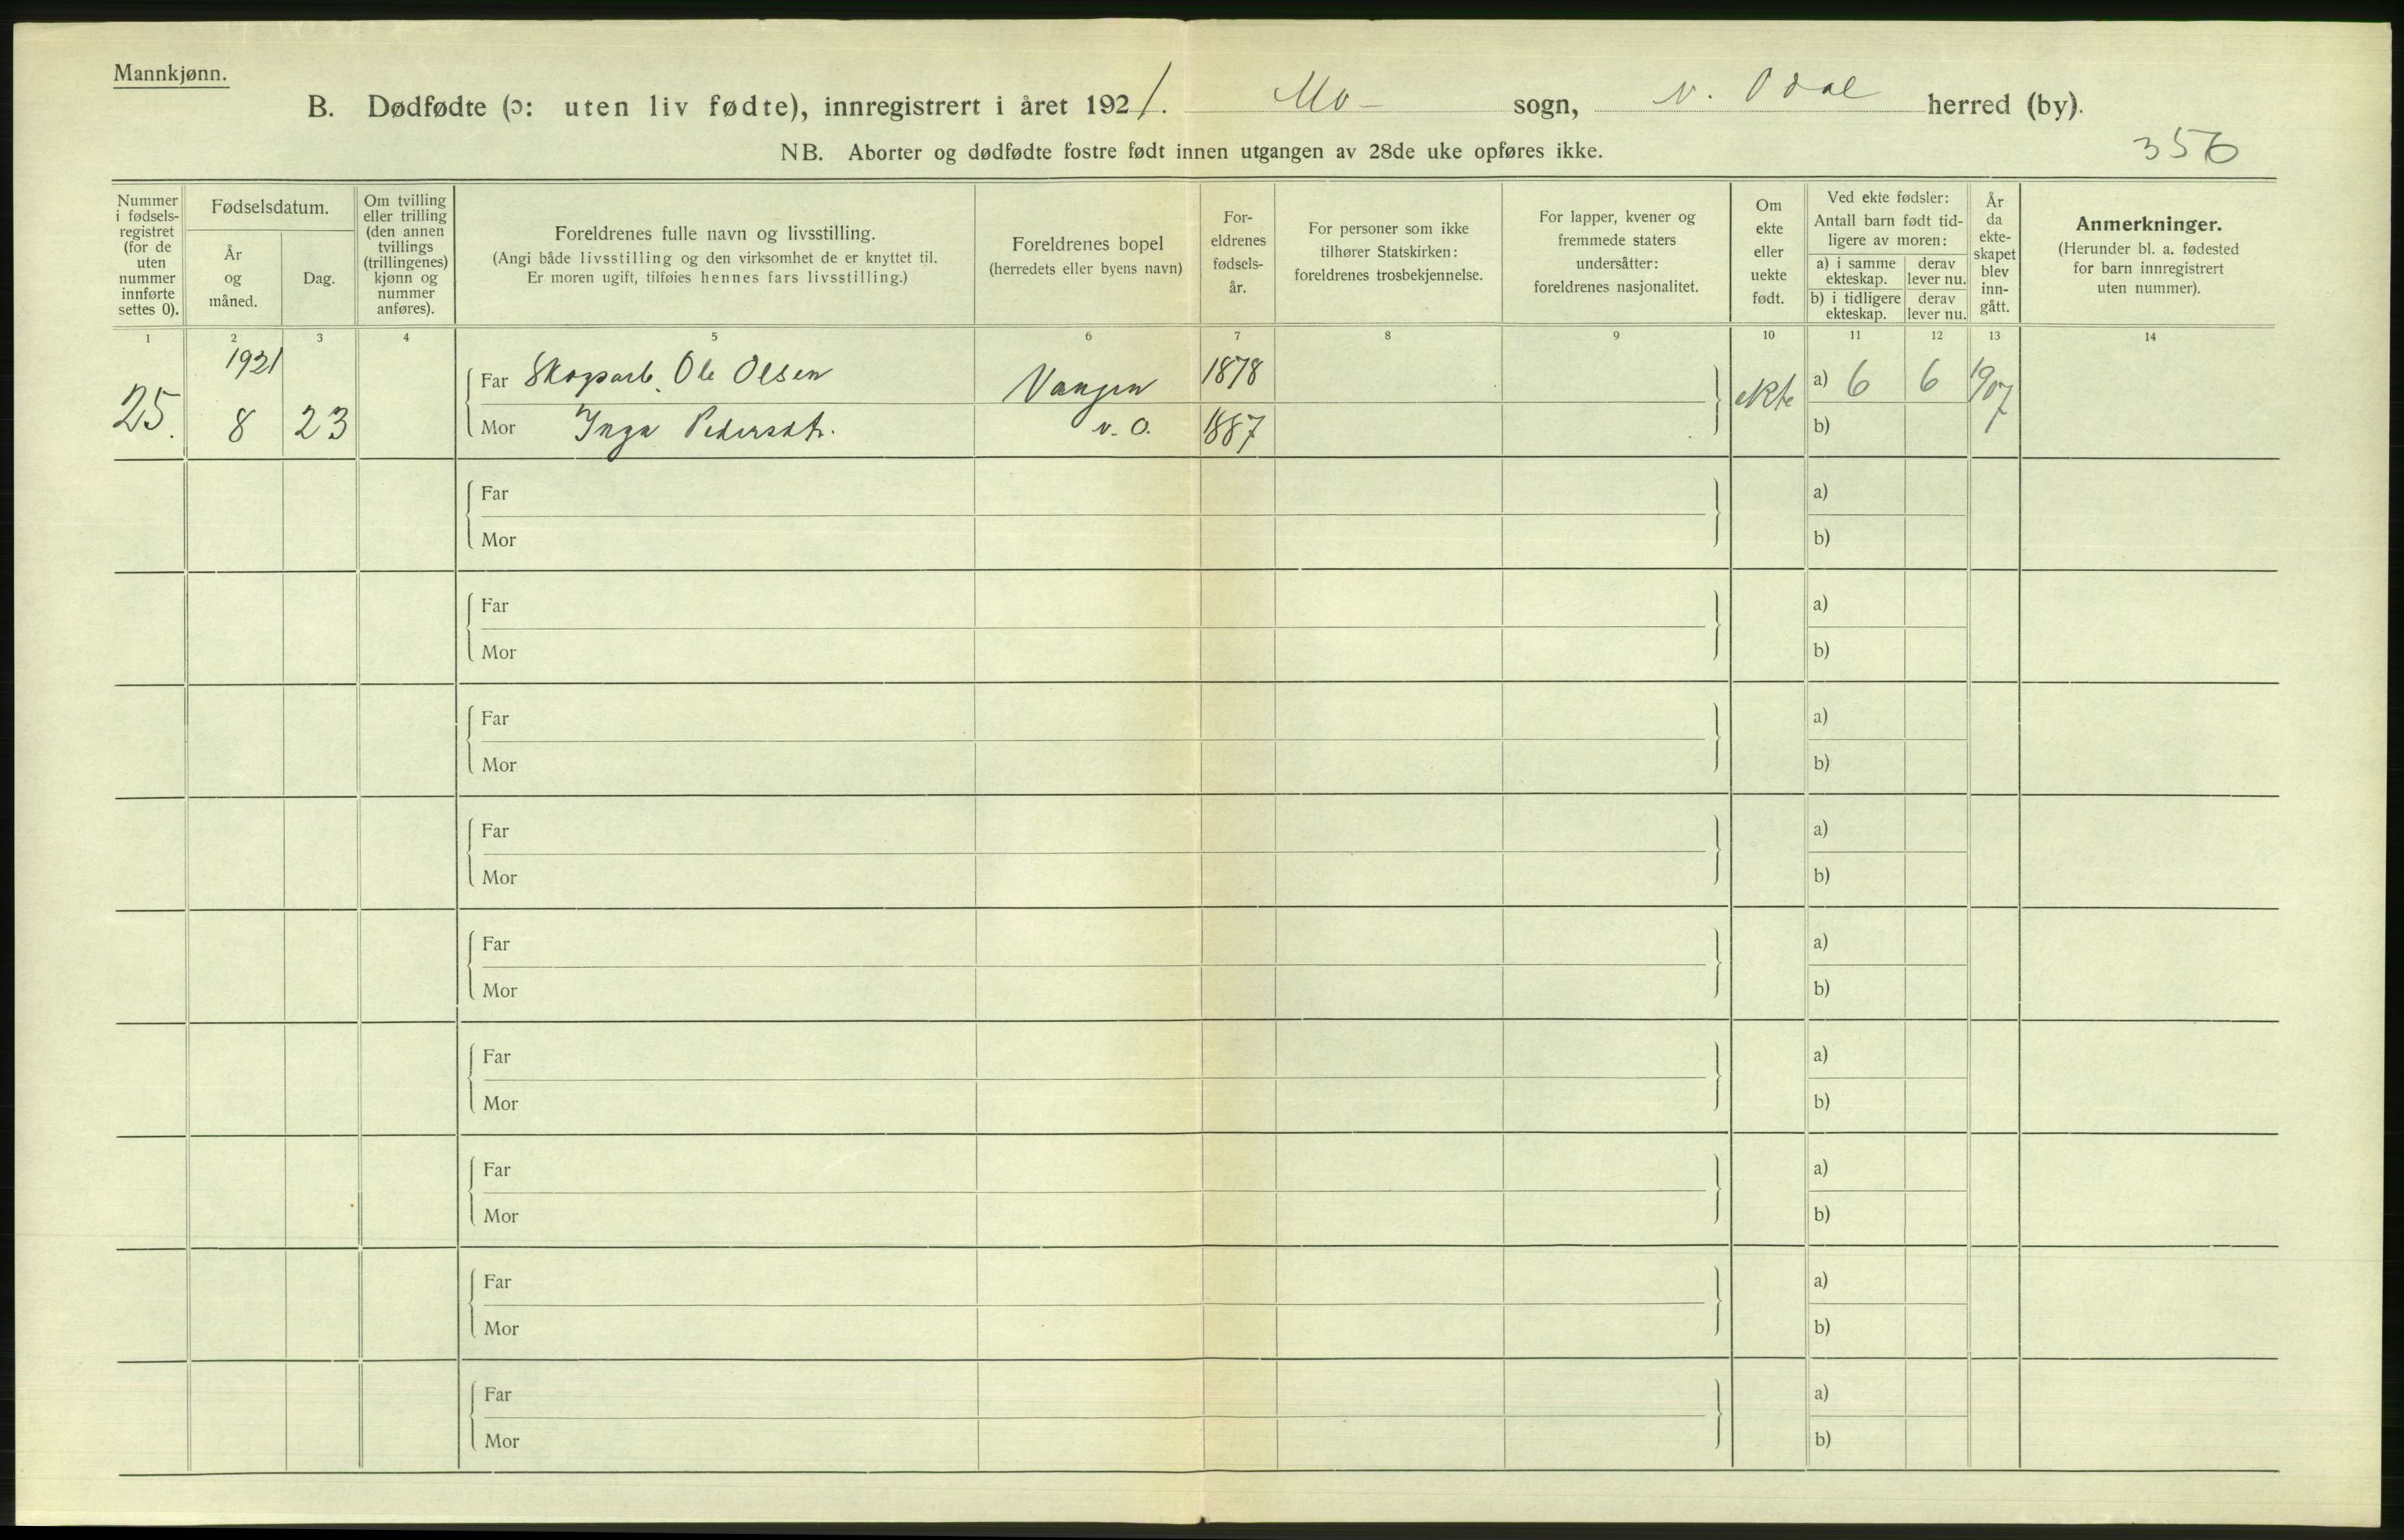 Mannkjønn.
B. Dødfødte (ɔ: uten liv fødte), innregistrert i året 1921. Mo – sogn, n. Odal herred (by).
NB. Aborter og dødfødte fostre født innen utgangen av 28de uke opføres ikke.
356
Nummer i fødsels- registret (for de uten nummer innførte settes 0).
Fødselsdatum.
År og måned.
Dag.
Om tvilling eller trilling (den annen tvillings (trillingenes) kjønn og nummer anføres).
Foreldrenes fulle navn og livsstilling.
(Angi både livsstilling og den virksomhet de er knyttet til.
Er moren ugift, tilføies hennes fars livsstilling.)
Foreldrenes bopel
(herredets eller byens navn)
For- eldrenes fødsels- år.
For personer som ikke tilhører Statskirken: foreldrenes trosbekjennelse.
For lapper, kvener og fremmede staters undersåtter: foreldrenes nasjonalitet.
Om ekte eller uekte født.
Ved ekte fødsler:
Antall barn født tid- ligere av moren:
a) i samme ekteskap.
derav lever nu.
b) i tidligere ekteskap.
derav lever nu.
År da ekte- skapet blev inn- gått.
Anmerkninger.
(Herunder bl. a. fødested for barn innregistrert uten nummer).
1 2 3 4 5 6 7 8 9 10 11 12 13 14
1921
Far Skogarb. Ole Olsen Vangen 1878 ekte a) 6 6 1907
25. 8 23 Mor Inga Pedersdtr. n. O. 1887 b)
Far a)
Mor b)
Far a)
Mor b)
Far a)
Mor b)
Far a)
Mor b)
Far a)
Mor b)
Far a)
Mor b)
Far a)
Mor b)
Far a)
Mor b)
Far a)
Mor b)